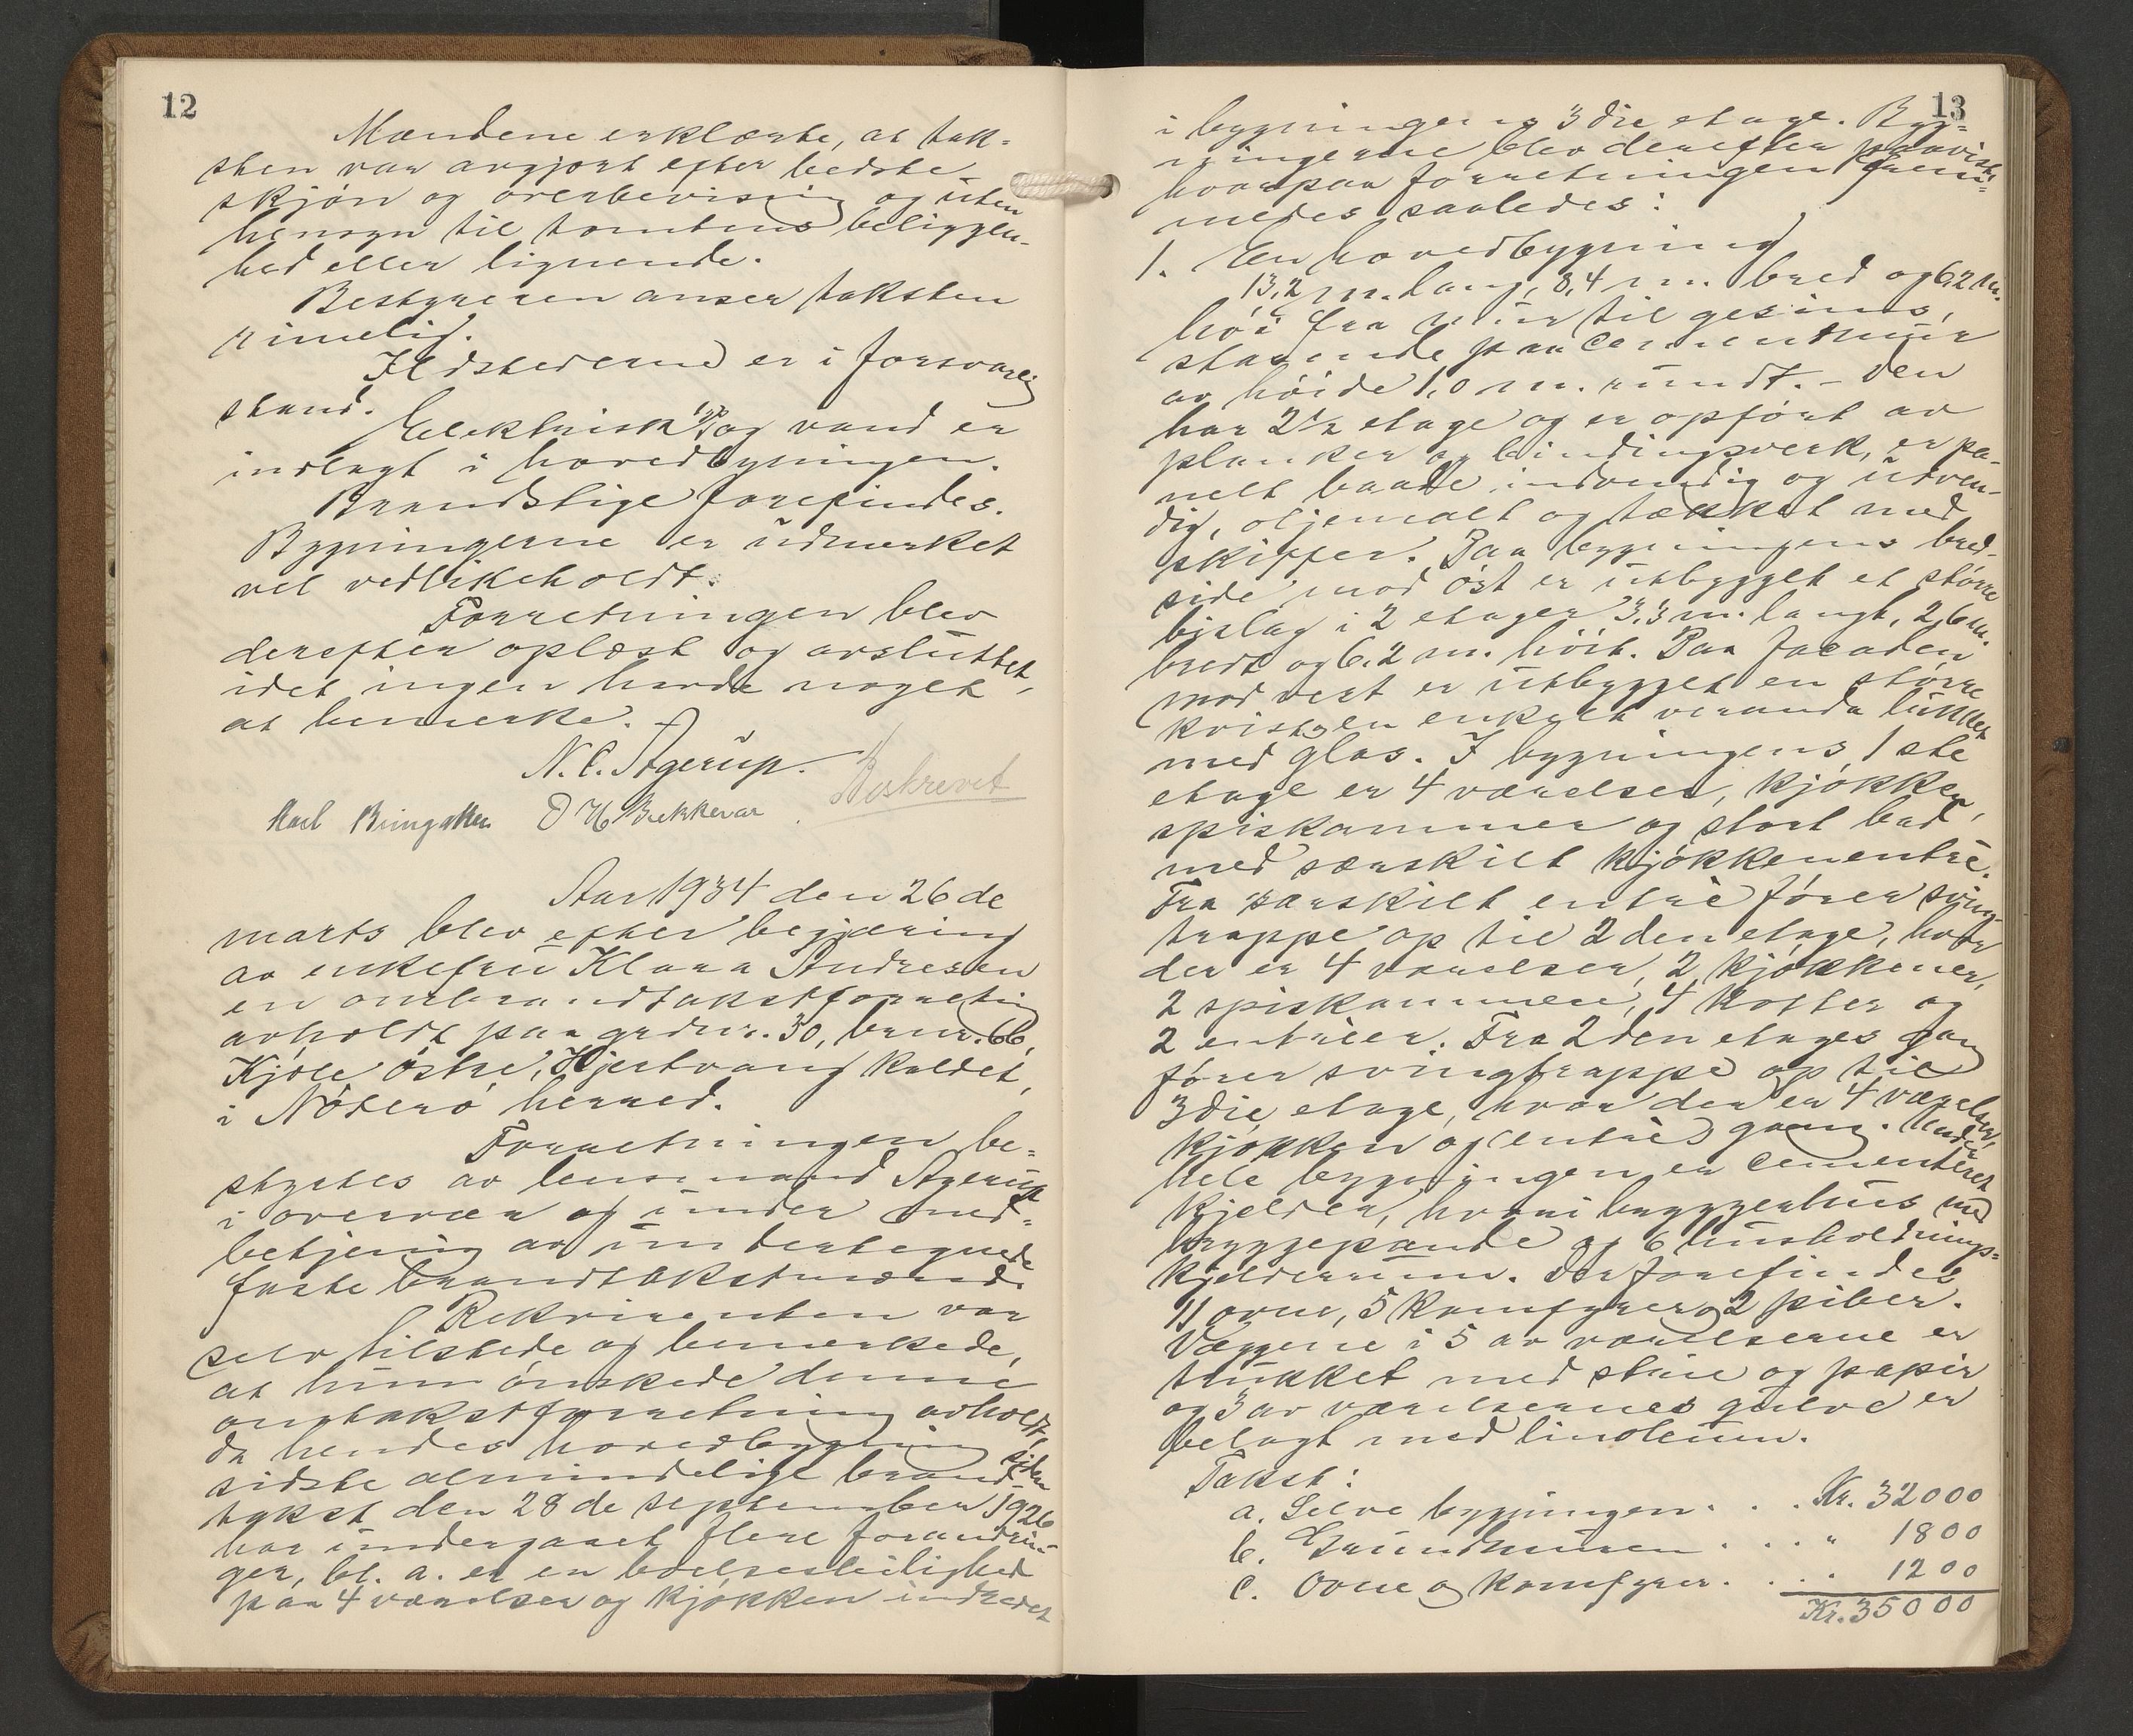 12
Mændene erklærte, at tak-
sten var avgjort efter bedste
skjøn og overbevisning og uten
hensyn til tomtens beliggen-
hed eller lignende.
Bestyreren anser taksten
rimelig.
Ildstederne er i forsvarlig
stand.
Elektrisk lys og vand er
indlagt i hovedbygningen.
Brandstige forefindes.
Bygningerne er udmerket
vel vedlikeholdt.
Forretningen blev
derefter oplæst og avsluttet,
idet ingen havde noget
at bemerke.
N. C. Agerup.
Karl Bringaker O H Bekkevar
Avskrevet
Aar 1934 den 26 de
marts blev efter begjæring
av enkefru Klara Andresen
en ombrandtakstforretning
avholdt paa grdnr. 30, brnr. 66,
Kjøle østre, Hjertvang kaldet,
i Nøterø herred.
Forretningen be-
styrtes av lensmand Agerup
i overvær og under med-
betjening av undertegnede
faste brandtakstmænd.
Rekvirenten var
selv tilstede og bemerkede,
at hun ønskede denne
omtakstforretning avholdt,
da hendes hovedbygning siden
sidste almindelige brand-
takst den 28 de september 1926
har undergaaet flere forandrin-
ger, bl. a. er en bolesleilighed
paa 4 værelser og kjøkken indredet
13
i bygningens 3 die etage. Byg-
ningerne blev derefter paavist,
hvorpaa forretningen frem-
medes saaledes:
1. En hovedbygning
13,2 m. lang, 8,4 m. bred og 6,2 m.
høi fra mur til gesims,
staaende paa cementmur
av høide 1,0 m. rundt. – Den
har 2 1/2 etage og er opført av
planker og bindingsverk, er pa-
nelt baade indvendig og utven-
dig, oljemalt og tækket med
skiffer. Paa bygningens bred-
side mod øst er utbygget et større
bislag i 2 etager 3,3 m. langt, 2,6 m.
bredt og 6,2 m. høit. Paa facaden
mod vest er utbygget en større
kvist og en enkelt veranda lukket
med glas. I bygningens 1 ste
etage er 4 værelser, kjøkken,
spiskammer og stort bad
med særskilt kjøkkenentré.
Fra særskilt entré fører sving-
trappe op til 2 den etage, hvor
der er 4 værelser, 2 kjøkkener,
2 spiskammere, 4 kotter og
2 entréer. Fra 2 den etages gang
fører svingtrappe op til
3 die etage, hvor der er 4 værelser,
kjøkken og entrés gang. Under
hele bygningen er cementeret
kjelder, hvori bryggerhus med
bryggepande og 6 husholdnings-
kjelderrum. Der forefindes
11 ovne, 5 komfyrer og 2 piber.
Væggene i 5 av værelserne er
trukket med strie og papir
og 3 av værelsernes gulve er
belagt med linoleum.
Takst:
a. Selve bygningen . . . Kr. 32000
b. Grundmuren . . . " 1800
c. Ovne og komfyrer. . . . 1200
Kr. 35000